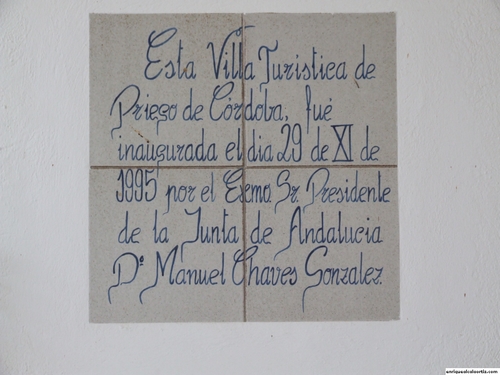 Esta Villa Turistica de
Priego de Córdoba, fué
inaugurada el dia 29 de XI de
1995 por el Excmo. Sr. Presidente
de la Junta de Andalucia
Dº Manuel Chaves Gonzalez.
enriquealcalaortiz.com